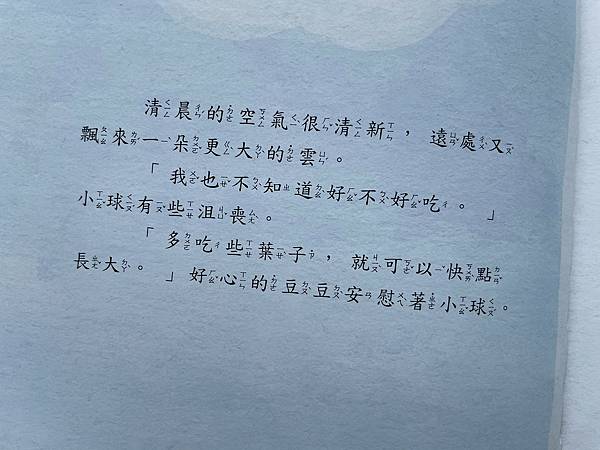 清晨的空氣很清新，遠處又
飄來一朵更大的雲。
「我也不知道好不好吃。」
小球有些沮喪。
「多吃些葉子，就可以快點
長大。」好心的豆豆安慰著小球。